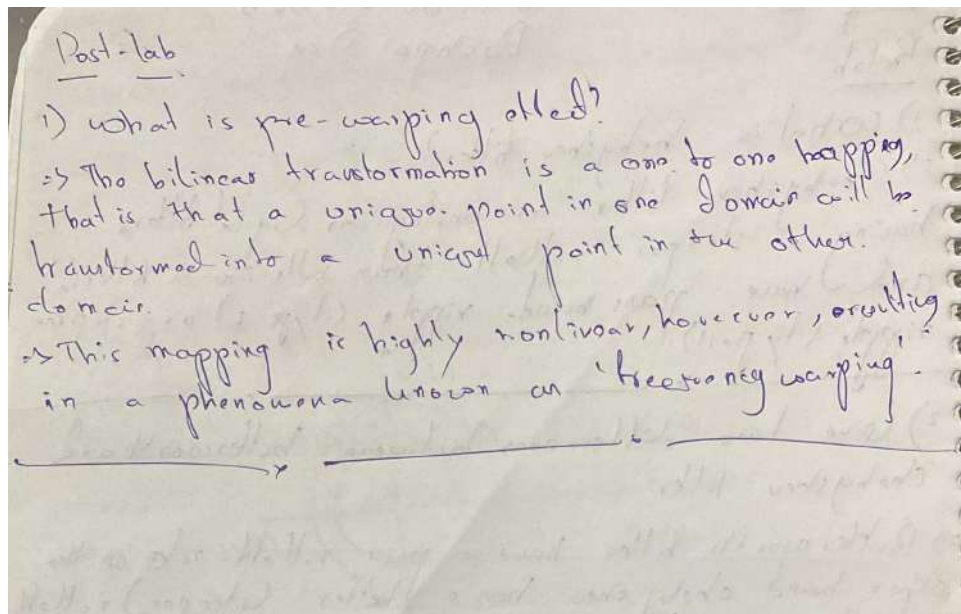 Post-lab
1) What is pre-warping effect?
=> The bilinear transformation is a one to one mapping,
that is that a unique point in one domain will be
transformed into a unique point in the other.
domain.
=> This mapping is highly nonlinear, however, resulting
in a phenomena known as 'frequency warping'.